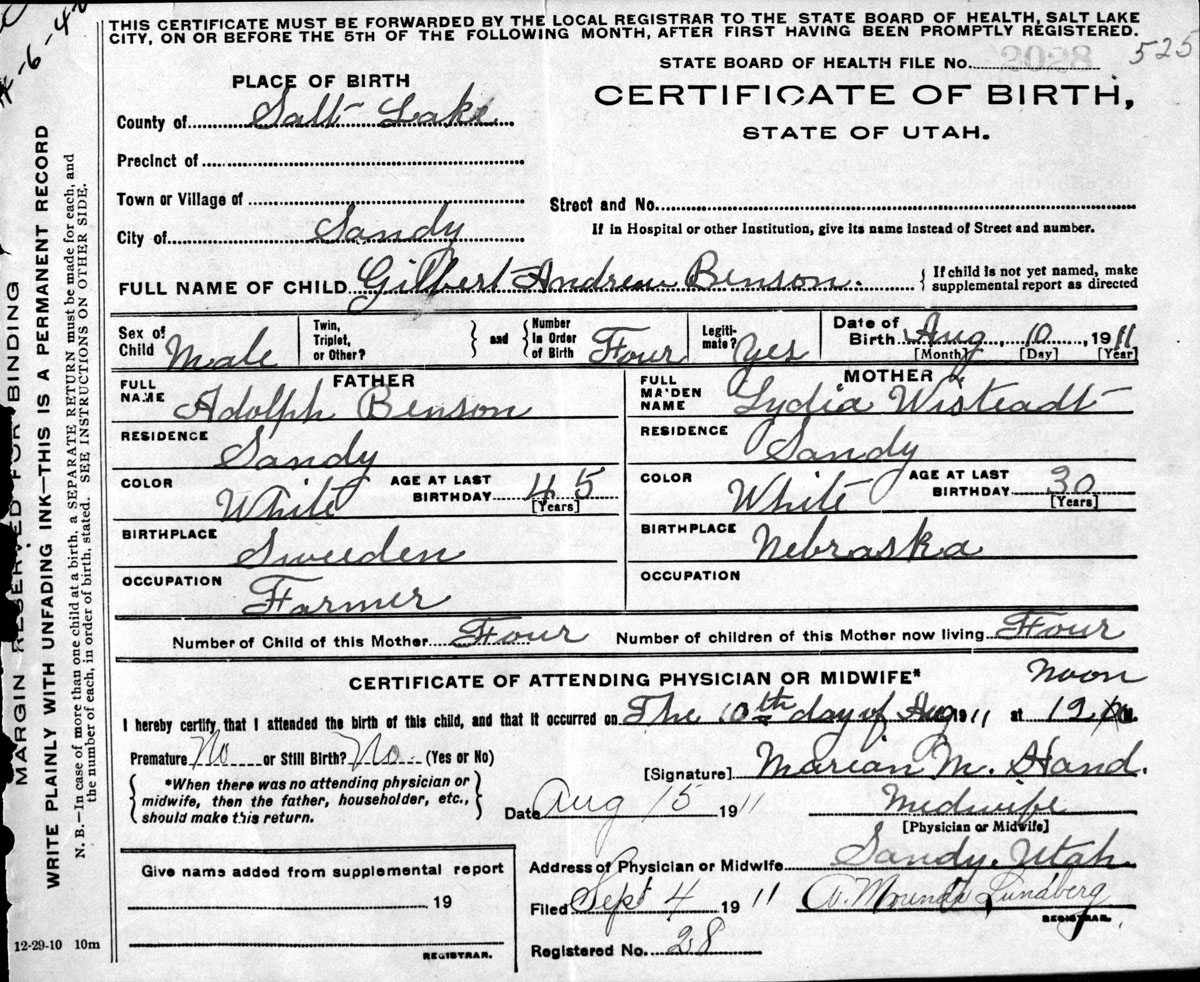 THIS CERTIFICATE MUST BE FORWARDED BY THE LOCAL REGISTRAR TO THE STATE BOARD OF HEALTH, SALT LAKE
CITY, ON OR BEFORE THE 5TH OF THE FOLLOWING MONTH, AFTER FIRST HAVING BEEN PROMPTLY REGISTERED.
525
STATE BOARD OF HEALTH FILE No.
PLACE OF BIRTH
CERTIFICATE OF BIRTH,
STATE OF UTAH.
County of Salt Lake
Precinct of
Town or Village of
Street and No.
City of Sandy
If in Hospital or other Institution, give its name instead of Street and number.
FULL NAME OF CHILD Gilbert Andrew Benson.
If child is not yet named, make
supplemental report as directed
Sex of
Child Male
Twin,
Triplet,
or Other?
and
Number
in Order
of Birth Four
Legiti-
mate? Yes
Date of
Birth Aug, 10, 1911
[Month] [Day] [Year]
FATHER
FULL
NAME Adolph Benson
RESIDENCE
Sandy
COLOR White
AGE AT LAST
BIRTHDAY 45
[Years]
BIRTHPLACE
Sweeden
OCCUPATION
Farmer
MOTHER
FULL
MAIDEN
NAME Lydia Wisteadt
RESIDENCE
Sandy
COLOR White
AGE AT LAST
BIRTHDAY 30
[Years]
BIRTHPLACE Nebraska
OCCUPATION
Number of Child of this Mother Four Number of children of this Mother now living Four
CERTIFICATE OF ATTENDING PHYSICIAN OR MIDWIFE*
Noon
I hereby certify, that I attended the birth of this child, and that it occurred on The 10th day of Aug 1911 at 12 M.
Premature No or Still Birth? No. (Yes or No)
[Signature] Marian M. Hand.
*When there was no attending physician or
midwife, then the father, householder, etc.,
should make this return.
Date Aug 15 1911
Medwife
[Physician or Midwife]
Address of Physician or Midwife Sandy. Utah
Give name added from supplemental report
19
REGISTRAR.
Filed Sept 4 1911
Lundberg
REGISTRAR.
Registered No. 28
12-29-10 10m
MARGIN RESERVED FOR BINDING
WRITE PLAINLY WITH UNFADING INK—THIS IS A PERMANENT RECORD
N. B.—In case of more than one child at a birth, a SEPARATE RETURN must be made for each, and
the number of each, in order of birth, stated. SEE INSTRUCTIONS ON OTHER SIDE.